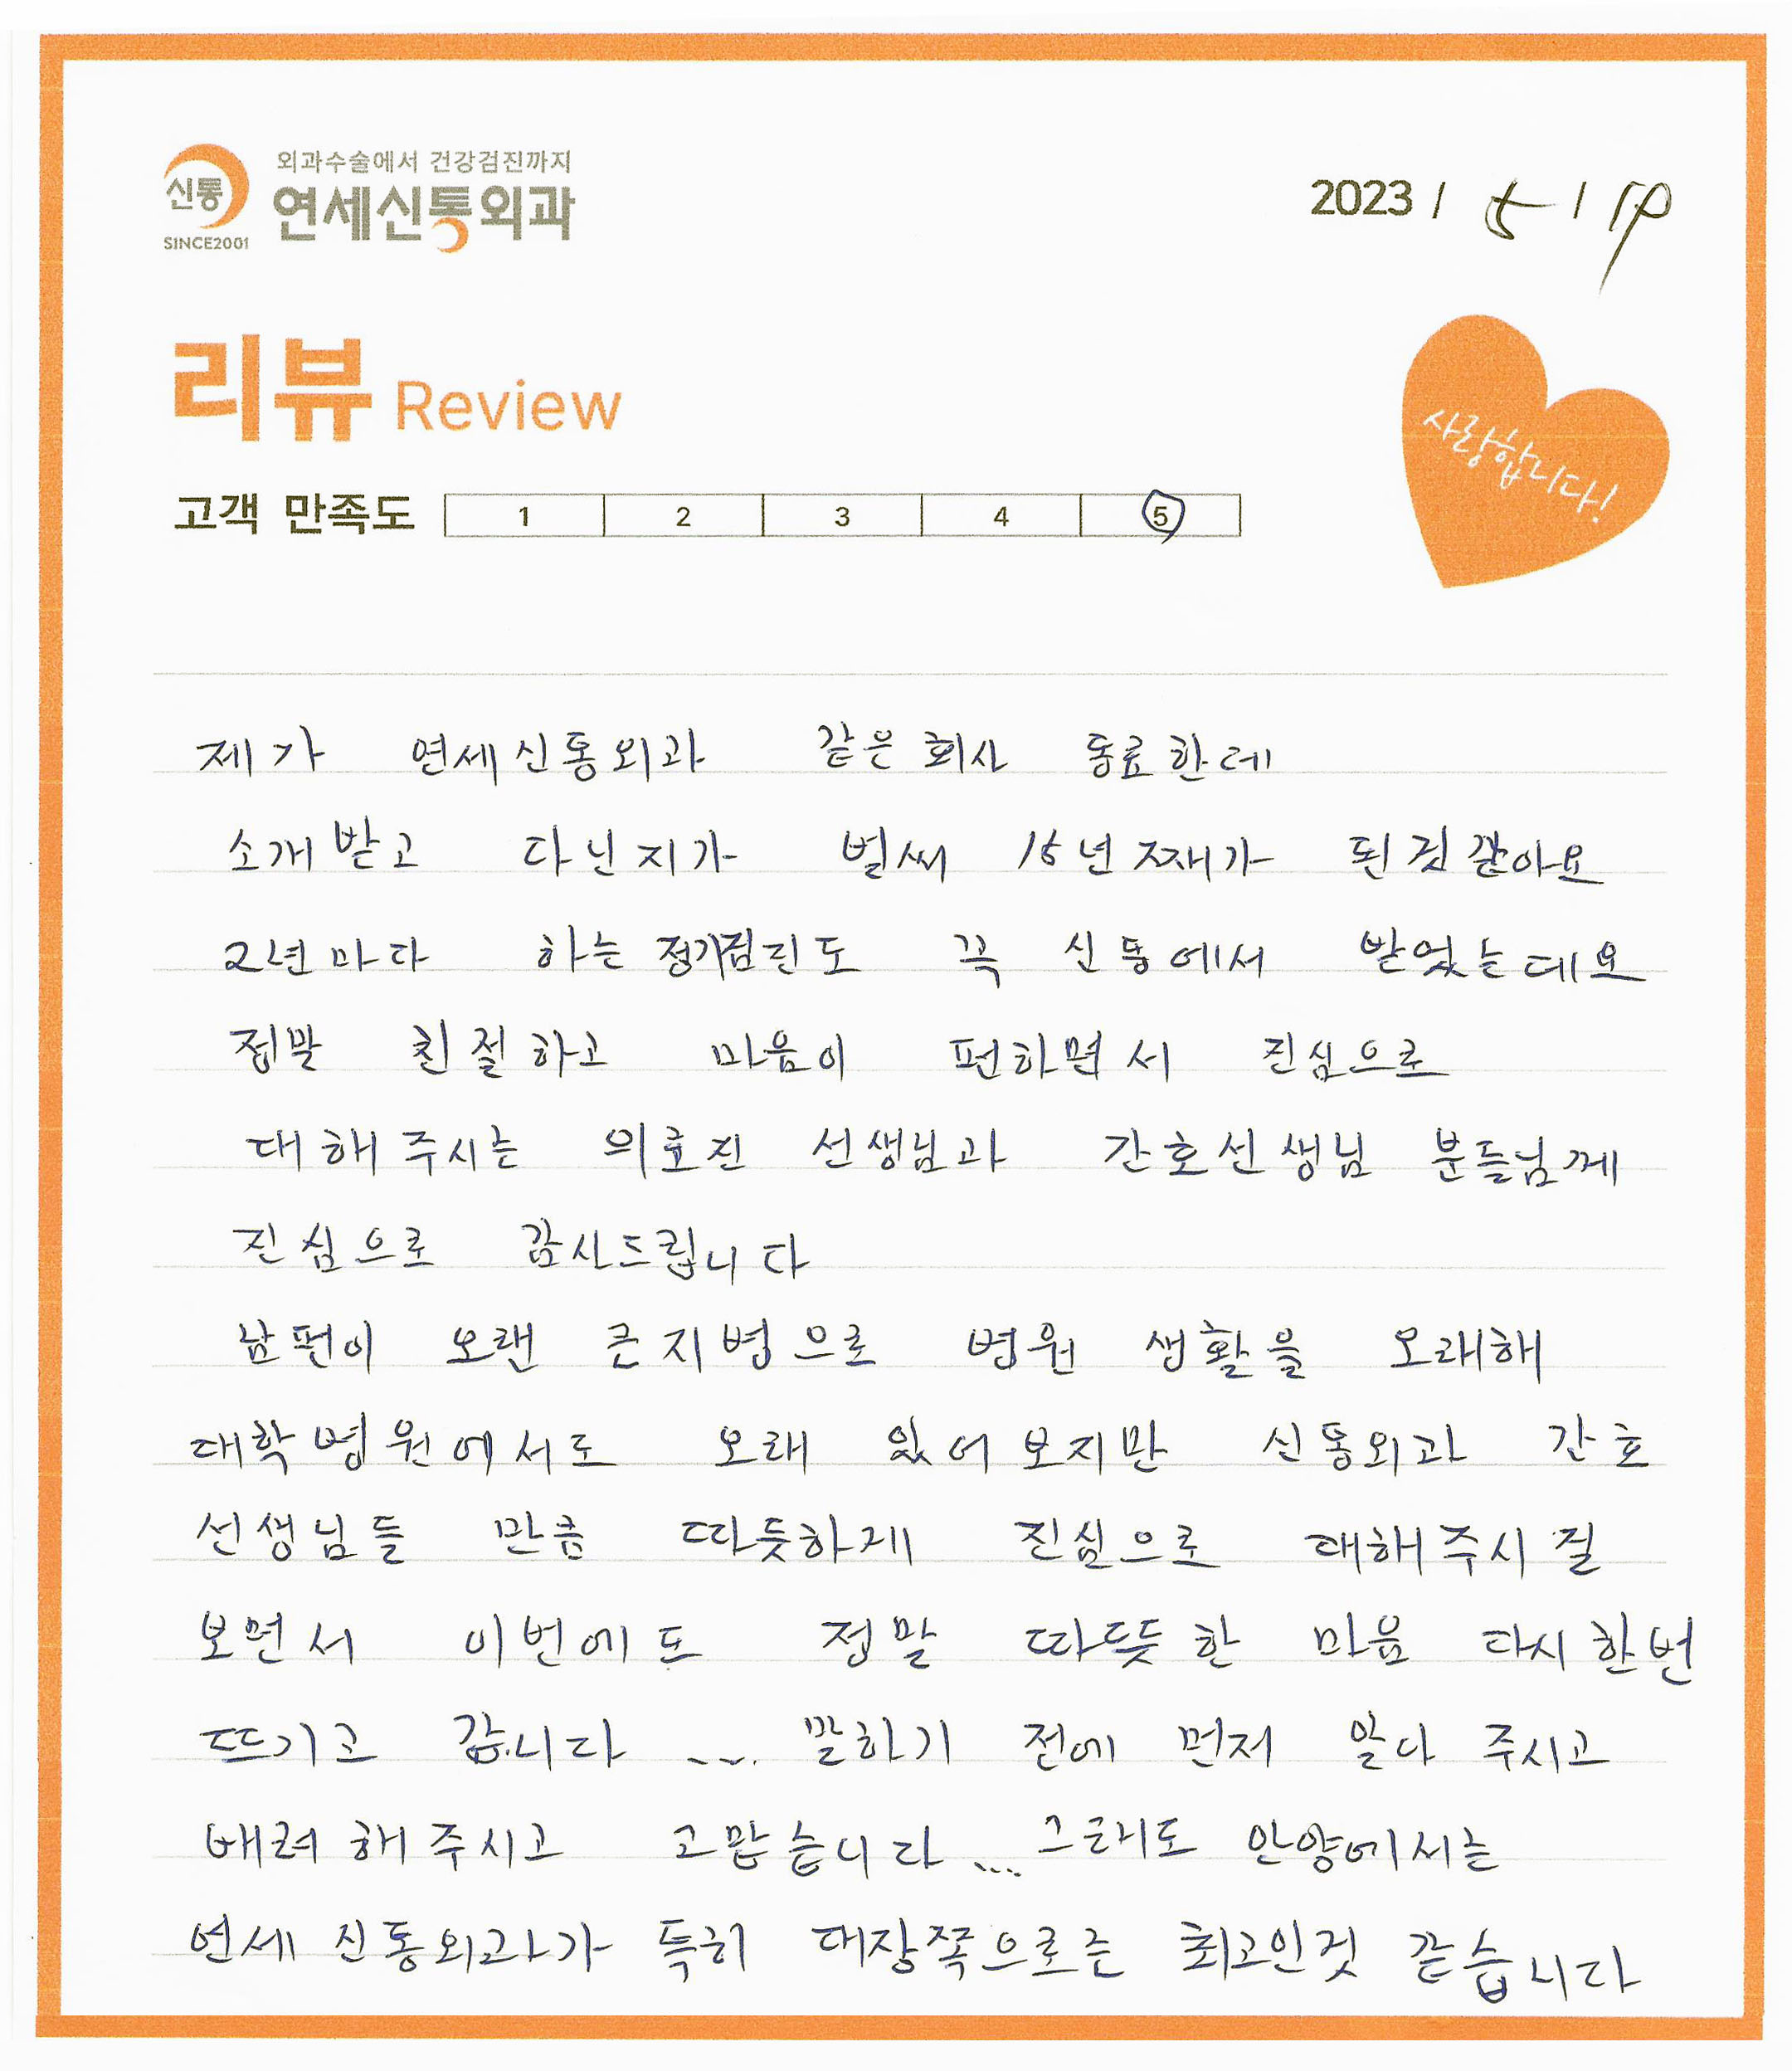 외과수술에서 건강검진까지
신통 연세신통외과
SINCE2001
2023 / 5 / 19
리뷰 Review
사랑합니다!
고객 만족도 1 2 3 4 5
제가 연세신통외과 같은회사 동료한데
소개받고 다닌지가 벌써 15년째가 된것같아요
2년마다 하는 정기검진도 꼭 신통에서 받았는데요
정말 친절하고 마음이 편하면서 진심으로
대해주시는 의료진 선생님과 간호선생님 분들님께
진심으로 감사드립니다
남편이 오랜 큰지병으로 병원 생활을 오래해
대학병원에서도 오래 있어보지만 신통외과 간호
선생님들 만큼 따듯하게 진심으로 대해주시질
보면서 이번에도 정말 따듯한 마음 다시한번
뜨기고 갑니다 .... 말하기 전에 먼저 알다 주시고
배려해주시고 고맙습니다 ... 그래도 안양에서는
연세 신통외과가 특히 대장쪽으로는 최고인것 같습니다